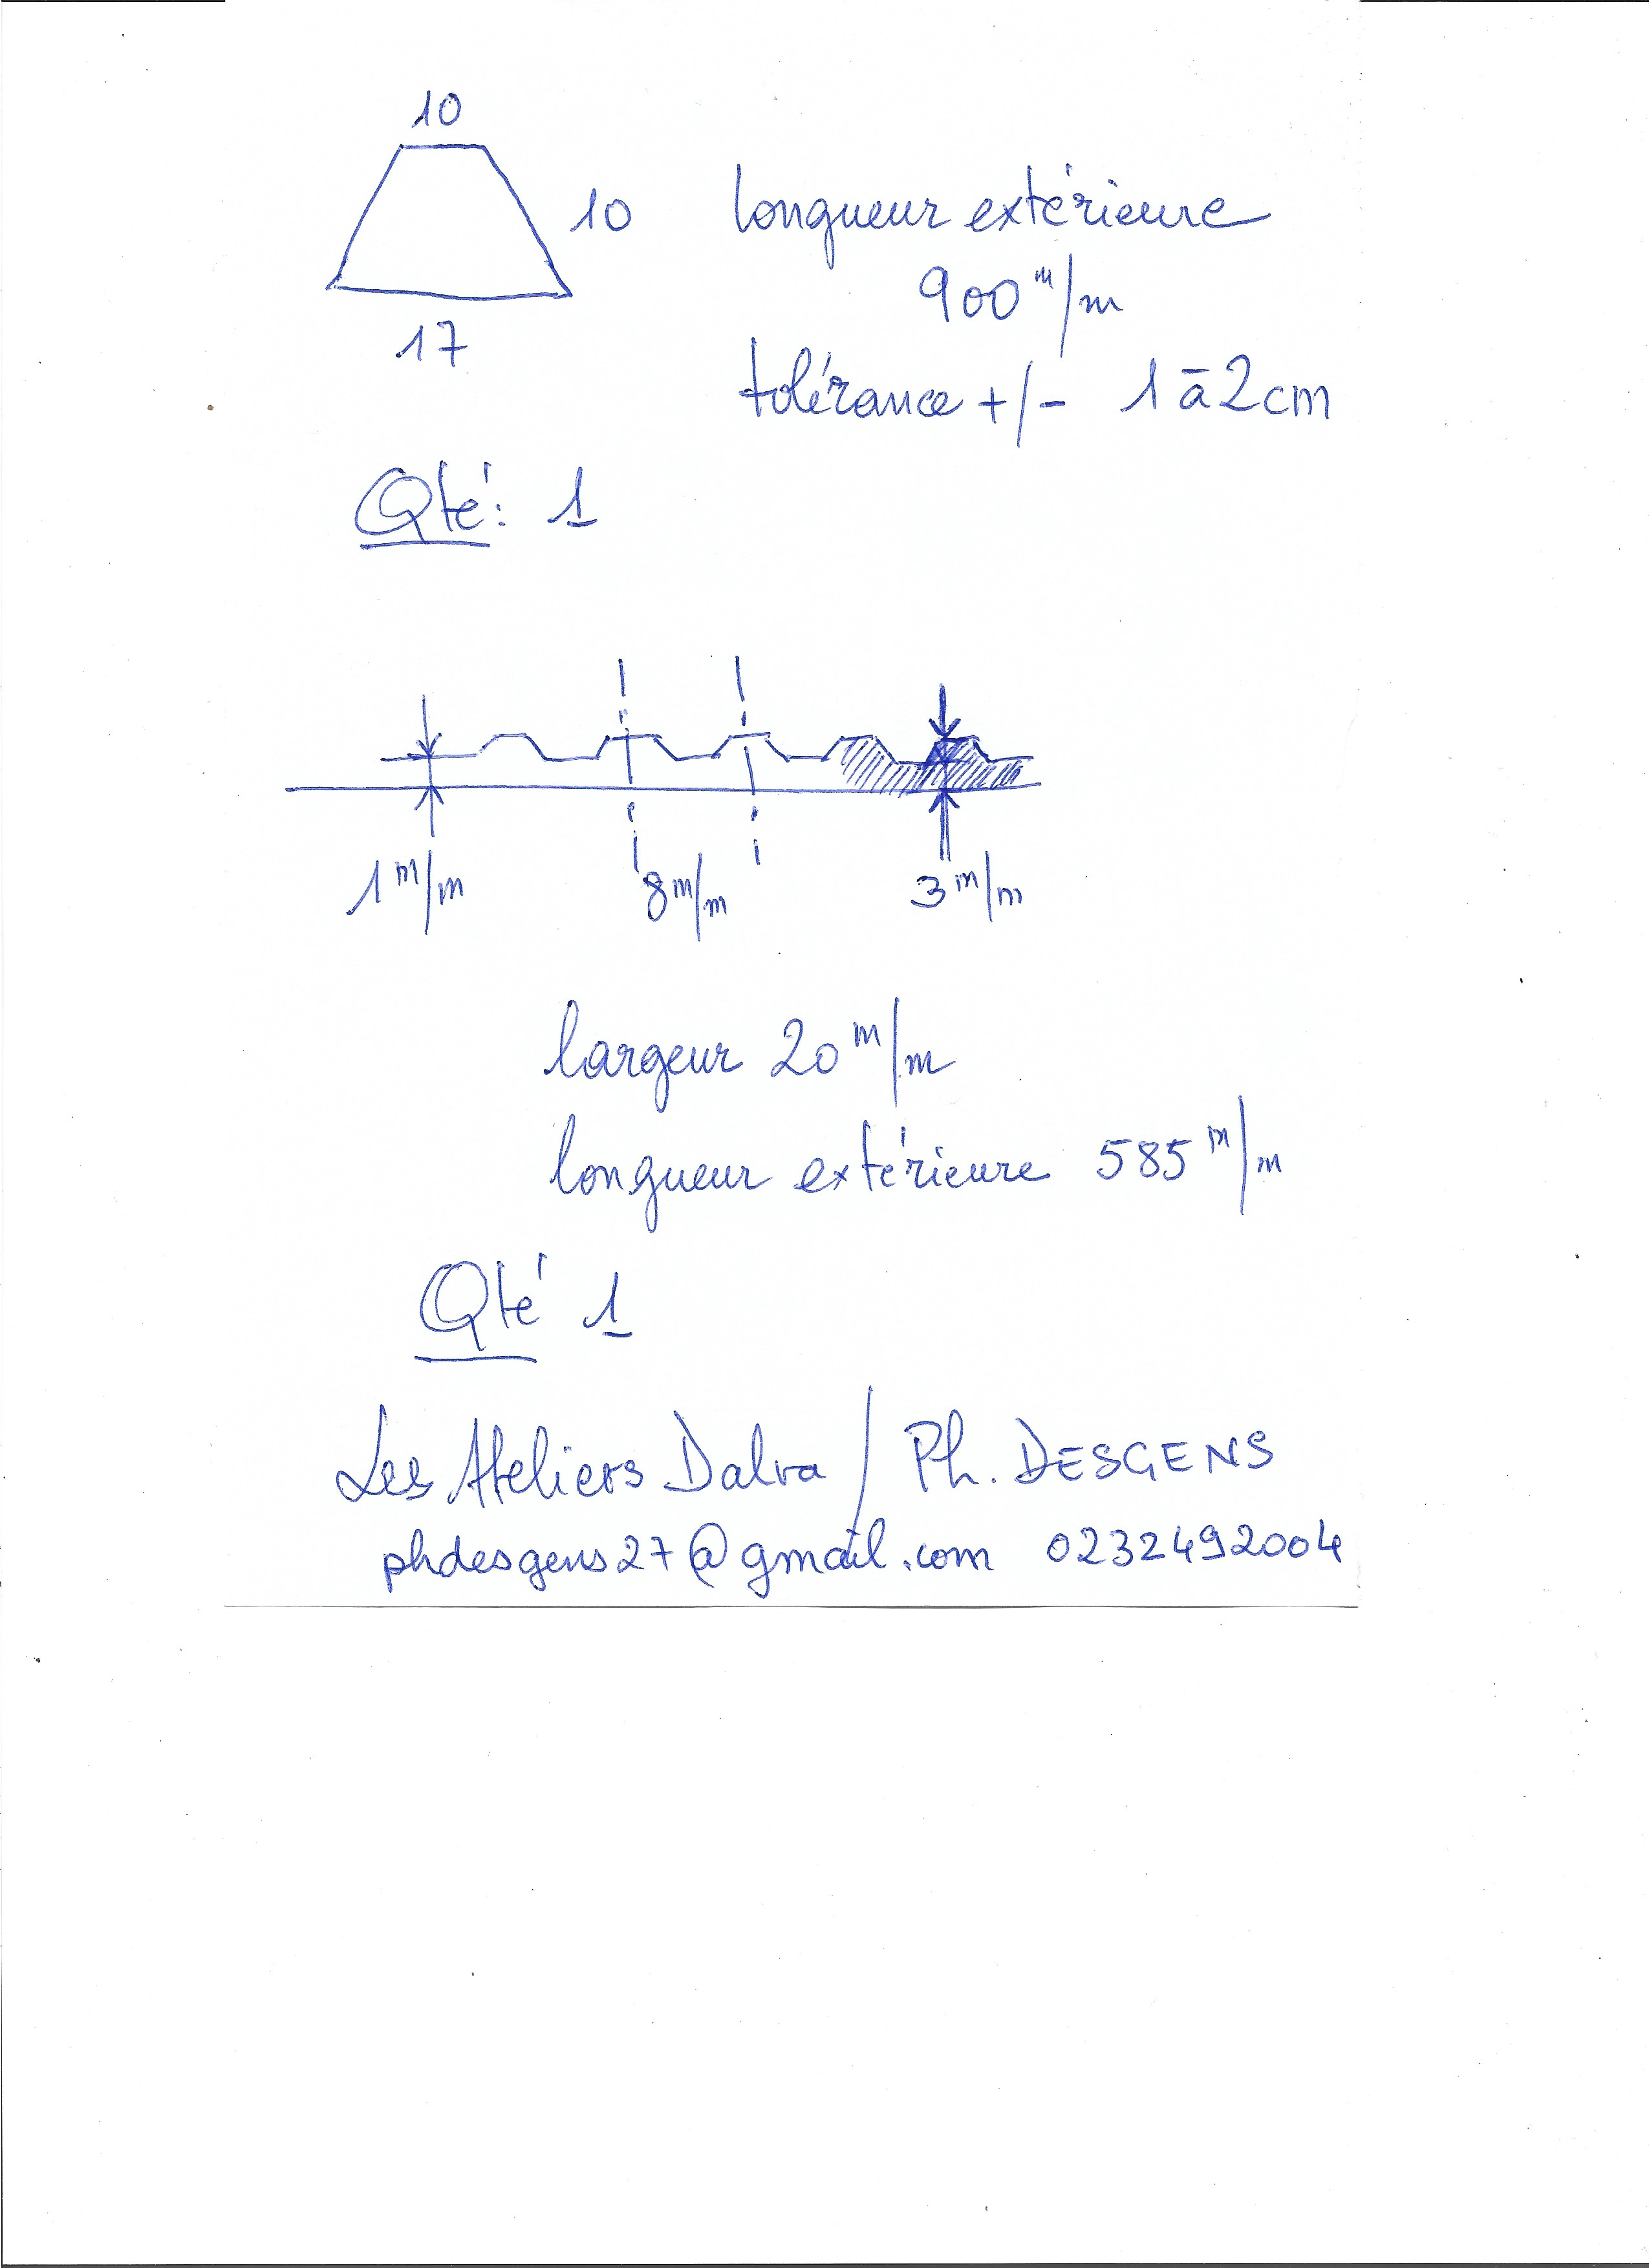 10
10
longueur extérieure
900 m/m
17
tolérance +/- 1 à 2 cm
Qté: 1
1 m/m
8 m/m
3 m/m
largeur 20 m/m
longueur extérieure 585 m/m
Qté 1
Les Ateliers Dalva / Ph. DESGENS
phdesgens27@gmail.com 0232492004